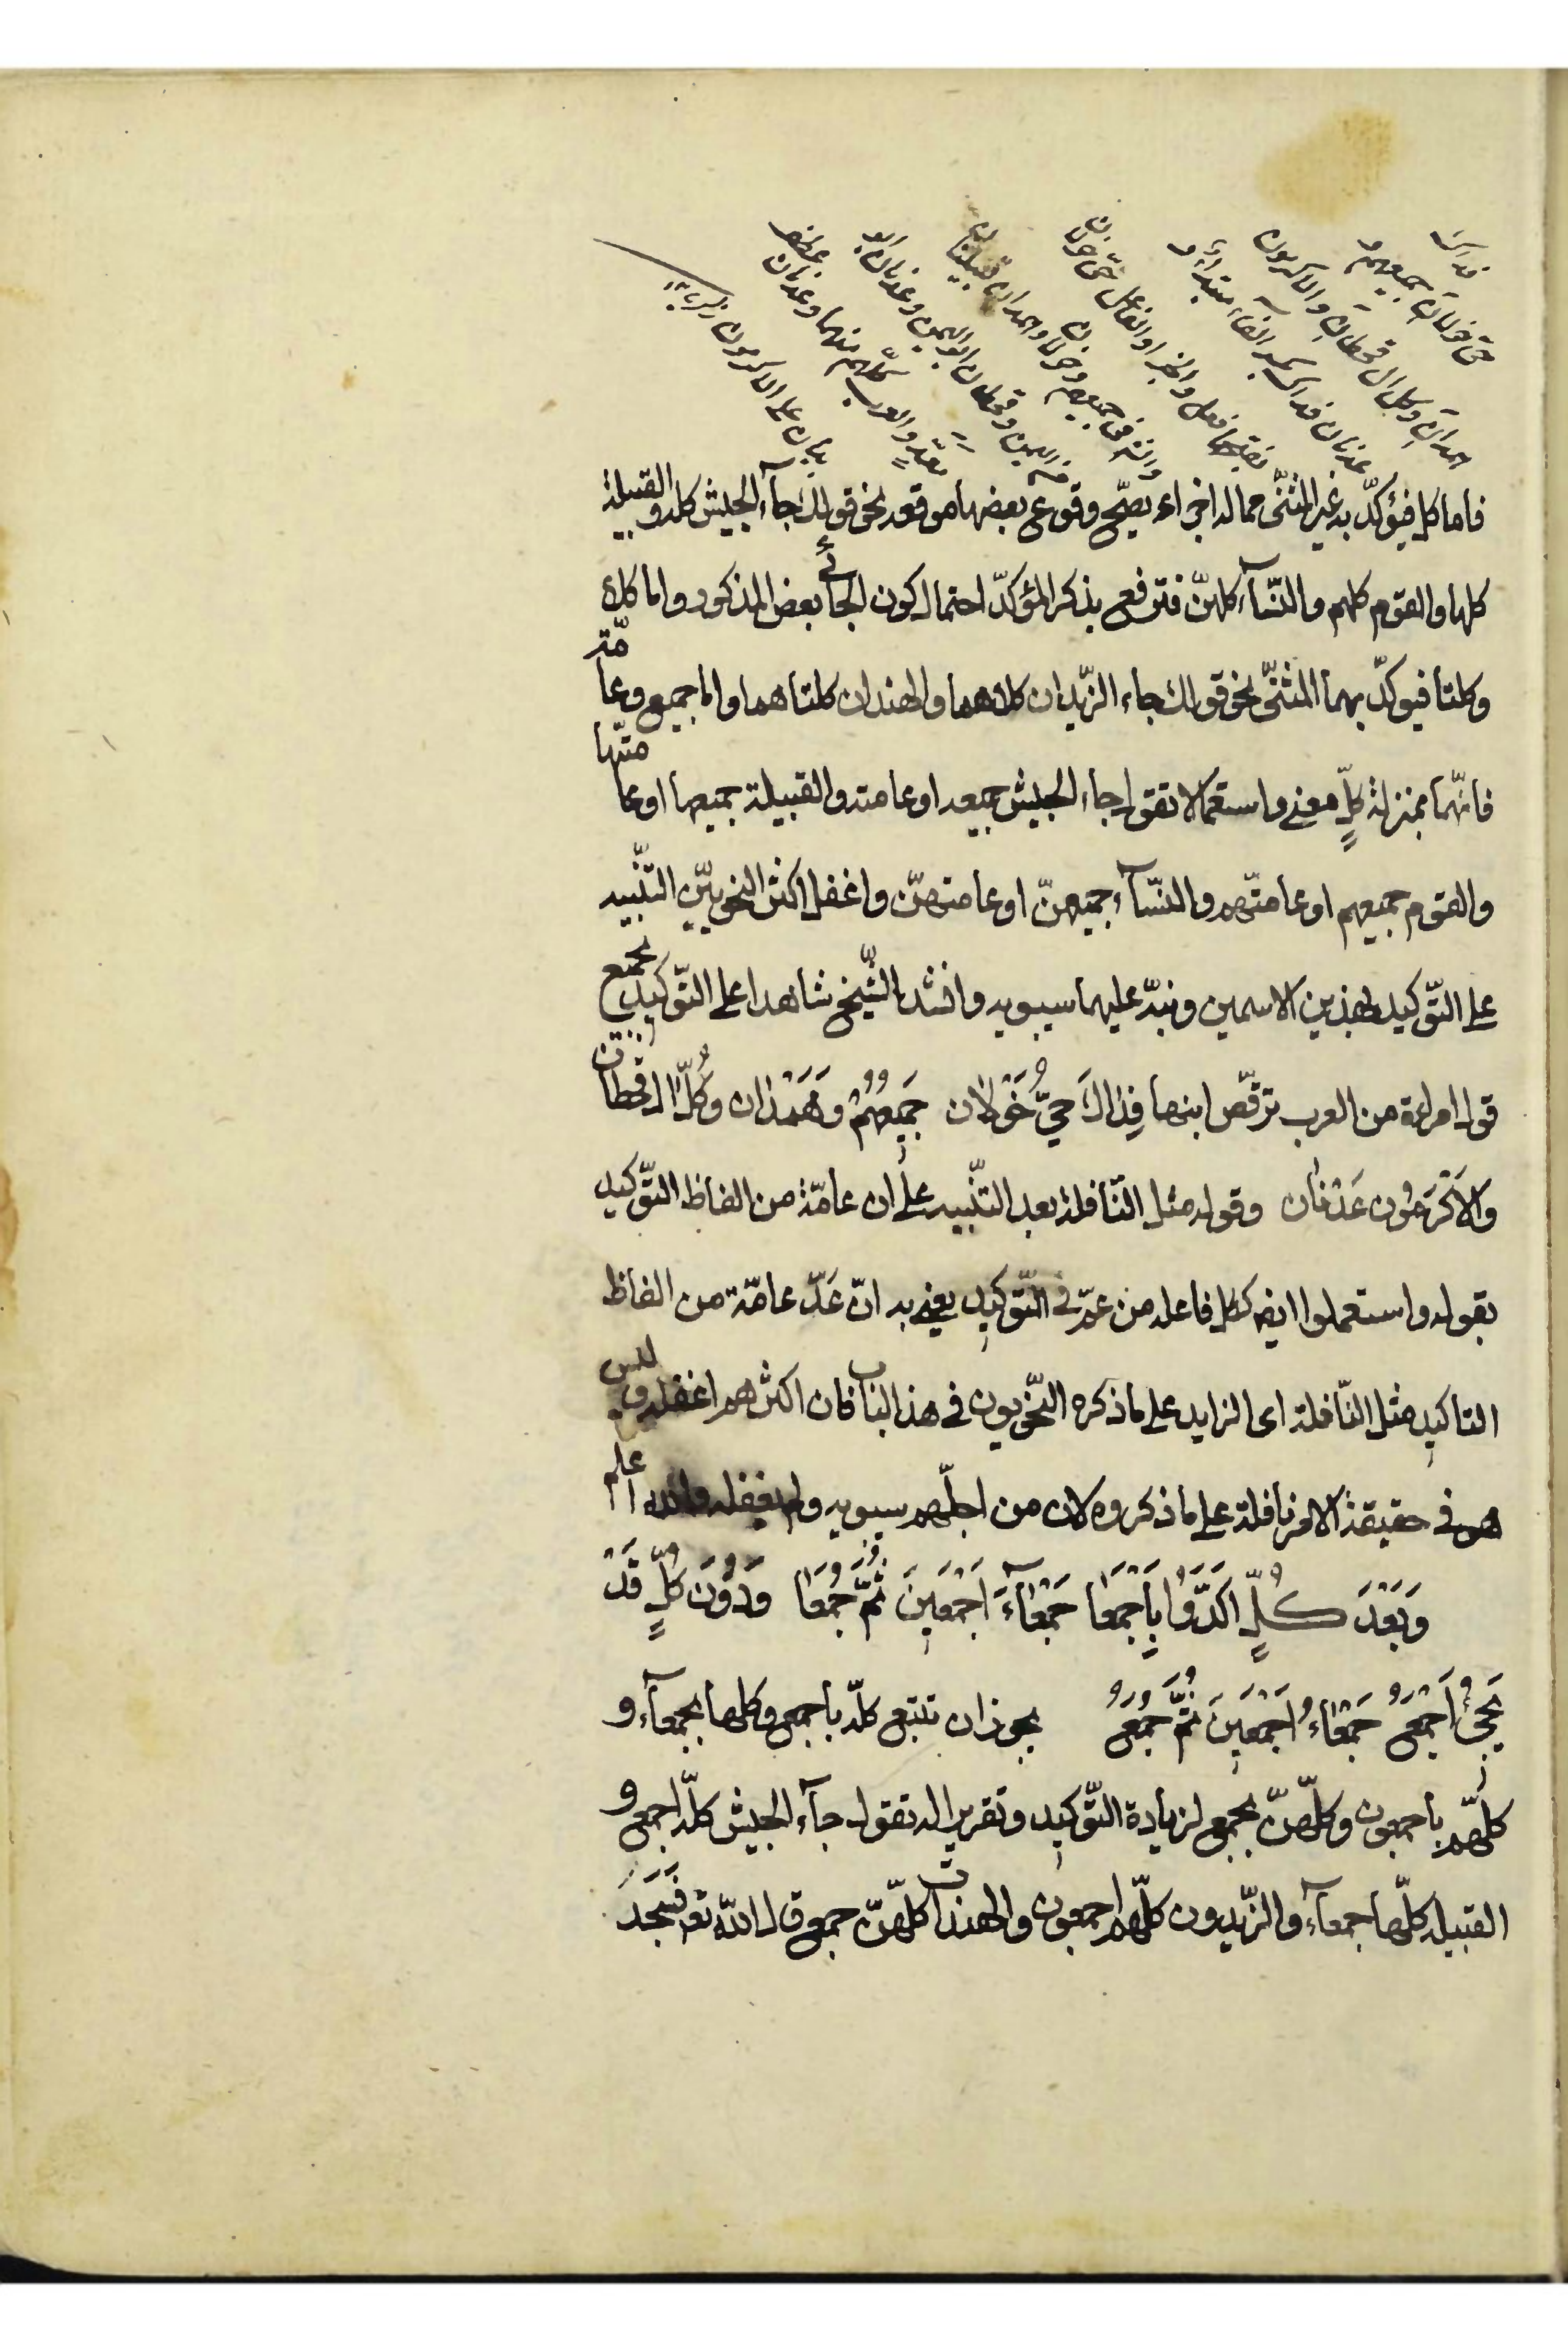 فداك
حي خولان جميعهم و
همدان وكل ال قحطان والاكرمون
عدنان فداك بكسر الفاء مبتداء و
بفتحها فعل والخبر او الفاعل حي خولان
من جميعهم وخولان وهمدان قبيلتان
من اليمن وقحطان ابو اليمن وعدنان ابو
معدّ والعرب كلّهم منهما وعدنان عطف
بيان على الاكرمون
فاما كل فيؤكّد به غير المثنّى مما له اجزاء يصحّ وقوع بعضها موقعه نحو قولك جآء الجيش كله والقبيلة
كلها والقوم كلهم والنّسآء كلهنّ فترفع بذكر المؤكدّ احتمال كون الجائي بعض المذكور واما كلا
وكلتا فيوكدّ بهما المثنّى نحو قولك جاء الزّيدان كلاهما والهندان كلتاهما واما جميع وعامّة
فانهّما بمنزلة كلٍّ معنى واستعمالا تقول جاء الجيش جميعه او عامته والقبيلة جميعها او عامتّها
والقوم جميعهم او عامتّهم والنّسآء جميعهنّ او عامتهنّ واغفل اكثر النحوييّن التنّبيه
على التّوكيد بهذين الاسمين ونبهّ عليهما سيبويه وانشد الشّيخ شاهدا على التّوكيد بجميع
قول امراءة من العرب ترقّص ابنها فِداكَ حيُّ خَوْلان جَمِيعُهُمْ وَهَمْدان وَكُلُّ ال قحطان
وَالاَكْرَمُون عَدْنان وقوله مثل النّافلة بعد التنّبيه على ان عامّة من الفاظ التّوكيد
بقوله واستعملوا ايضا ككل فاعله من عمّ في التّوكيد يعني به انّ عَدّ عامّة من الفاظ
التاكيد مثل النّافلة اى الزايد على ما ذكره النّحويون في هذا الباب فان اكثرهم اغفله وليس
هو في حقيقة الامر نافلة على ما ذكروه لان من اجلّهم سيبويه ولم يغفله والله اعلم
وَبَعْدَ كُلٍّ اَكَدَّوُا بِاَجْمَعَا جَمْعَآءَ اَجْمَعِينَ ثُمَّ جُمَعَا وَدُونَ كُلٍّ قَدْ
يَجِيُ اَجْمَعُ جَمْعَاءُ اَجْمَعِينَ ثُمَّ جُمَعُ يجوز ان تتبع كلّه باجمع وكلها بجمعآء و
كلّهم باجمعون وكلّهنّ بجمع لزيادة التّوكيد وتقريرا له تقول جآء الجيش كلّه اجمع و
القبيله كلّها جمعآء والزّيدون كلّهم اجمعون والهندات كلّهنّ جمع قال اللهّ تع فَسَجَدَ